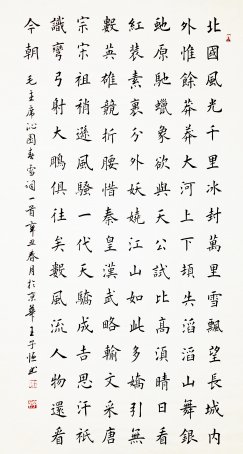 北國風光千里冰封萬里雪飄望長城内
外惟餘莽莽大河上下頓失滔滔山舞銀
蛇原馳蠟象欲與天公試比高須晴日看
紅裝素裹分外妖嬈江山如此多嬌引無
數英雄競折腰惜秦皇漢武略輸文采唐
宗宋祖稍遜風騷一代天驕成吉思汗衹
識彎弓射大鵰俱往矣數風流人物還看
今朝 毛主席沁園春雪詞一首辛丑春月於京華王子恒書